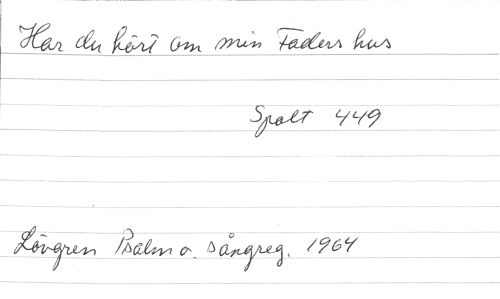 Har du hört om min Faders hus
Spalt 449
Lövgren Psalm o. sångreg. 1964